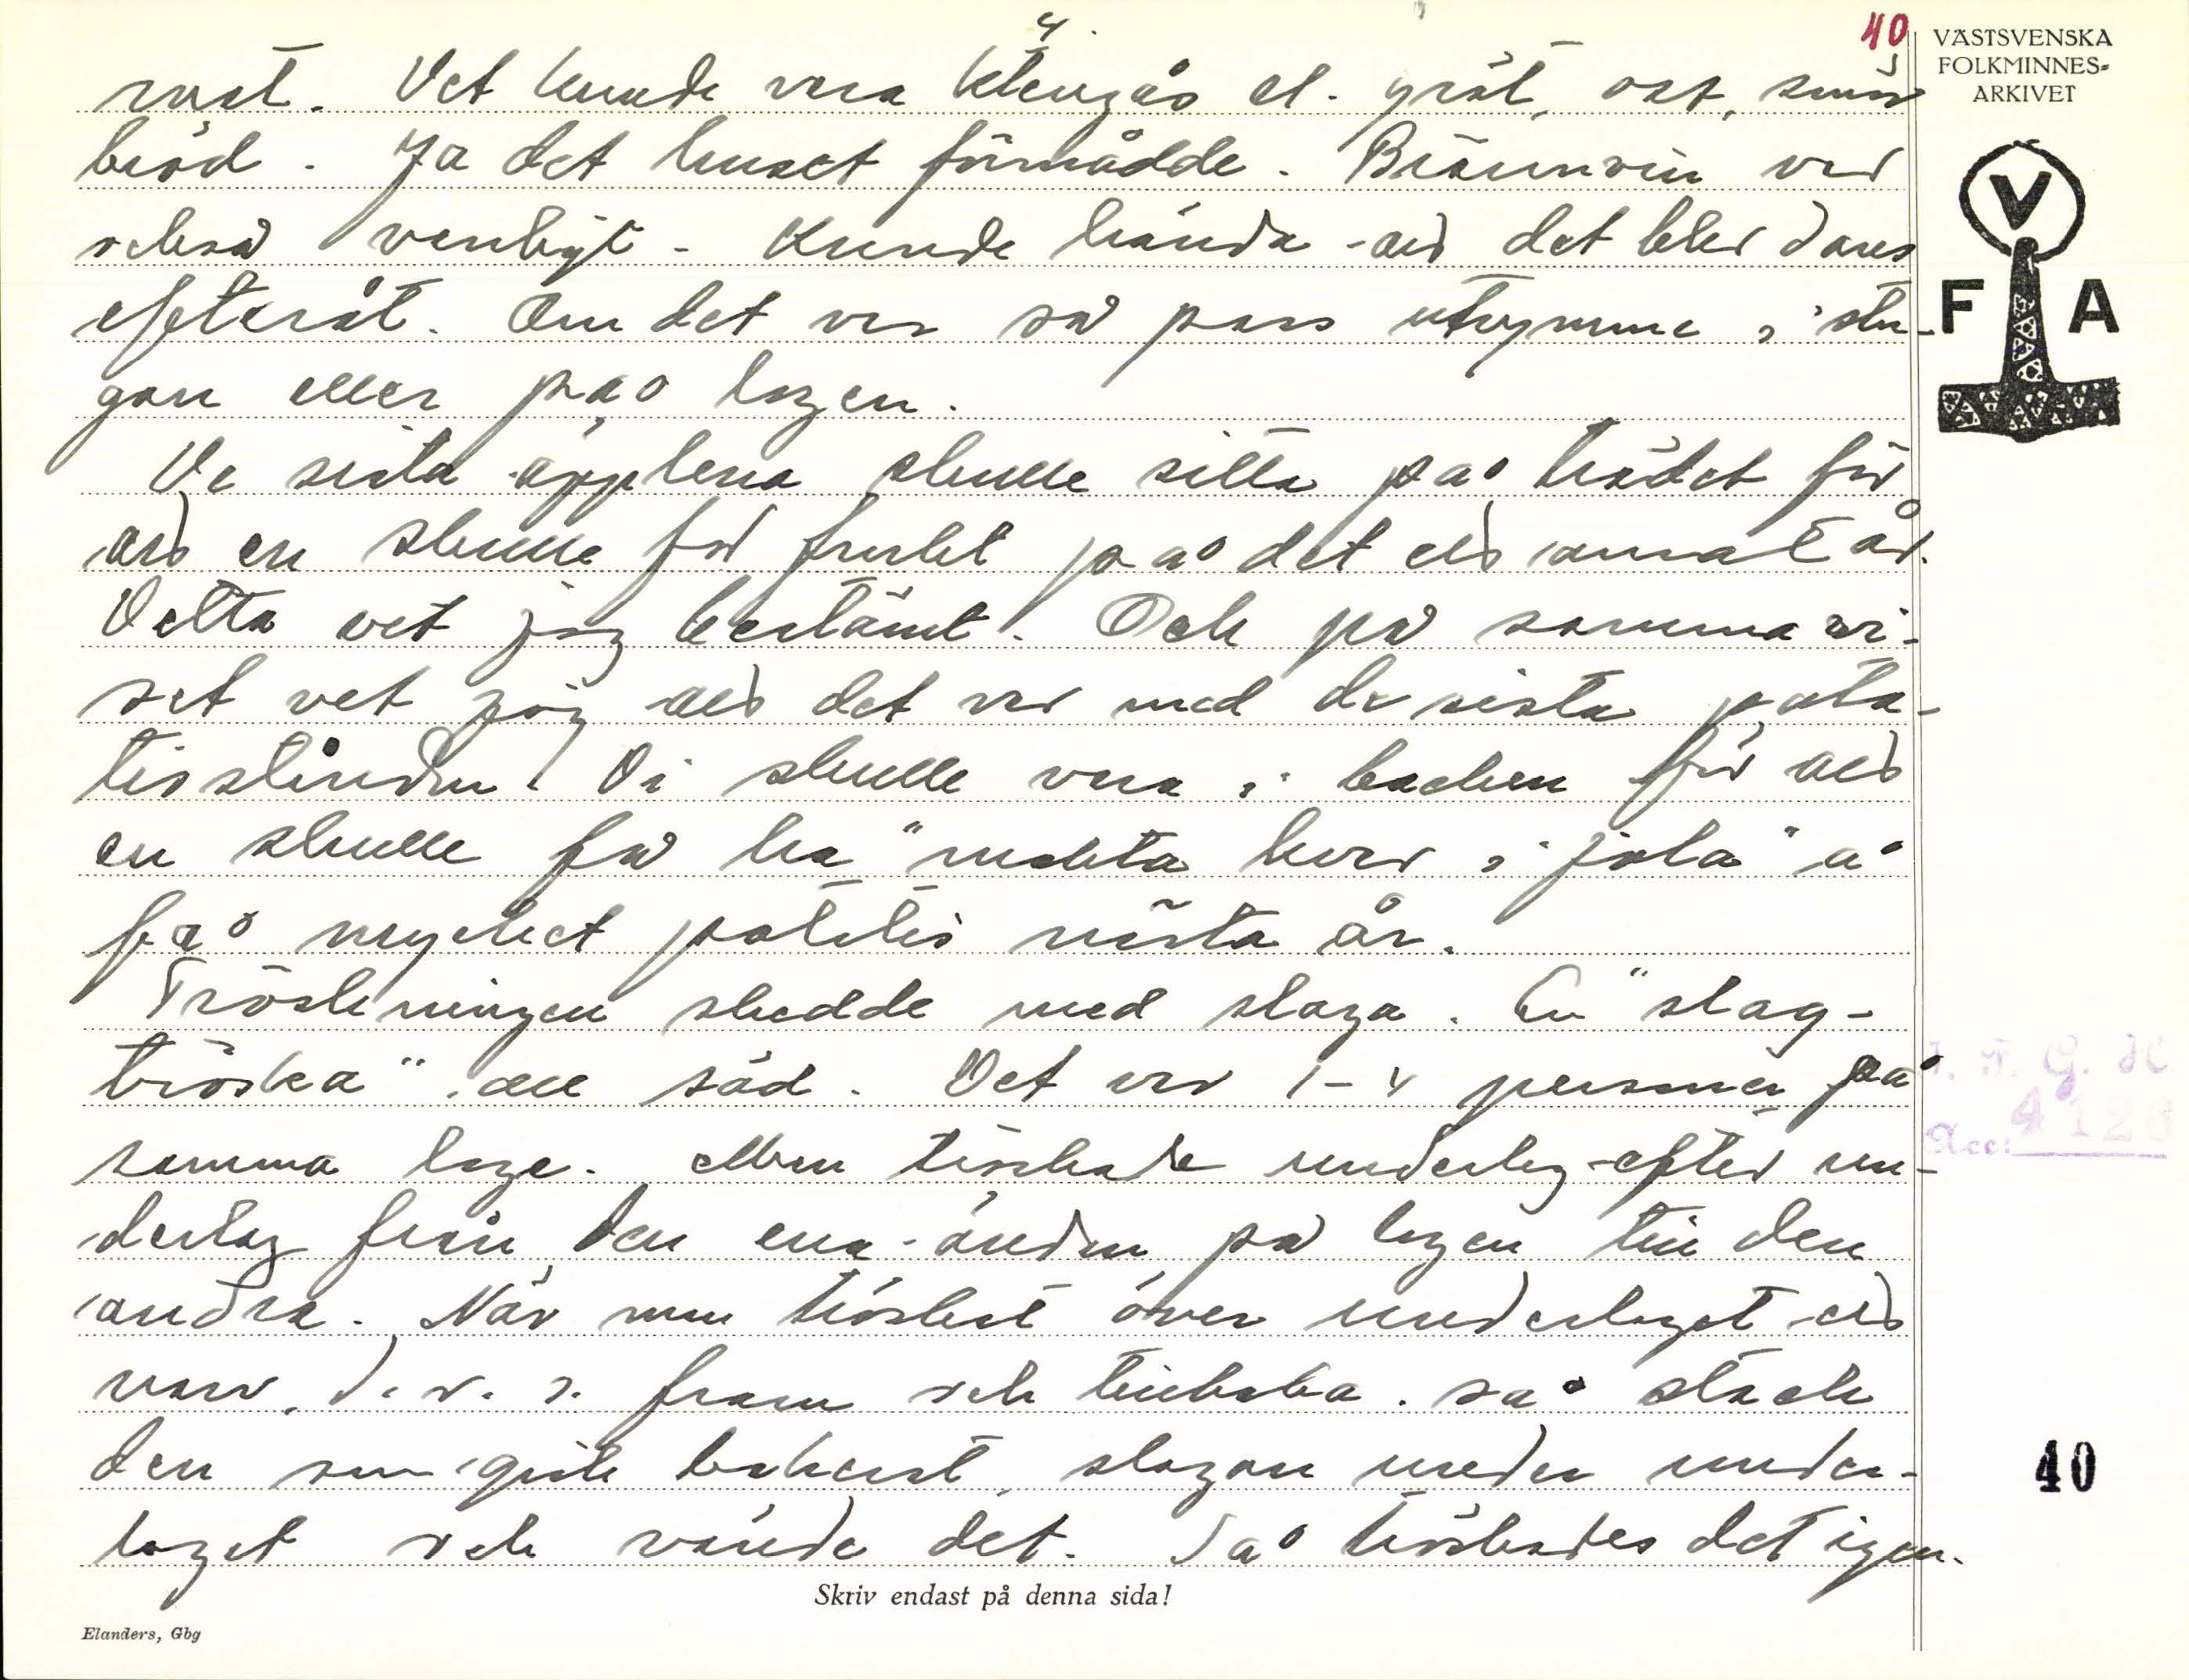 4.
40
VÄSTSVENSKA
FOLKMINNES-
ARKIVET
V
F A
mat. Det kunde vara klengås el. gröt, ost, smör
bröd. Ja det huset förmådde. Brännvin var
också vanligt. Kunde hända att det blev dans
efteråt. Om det var så pass utrymme i stu-
gan eller på logen.
De sista äpplena skulle sitta på trädet för
att en skulle få frukt på det ett annat år.
Detta vet jag bestämt. Och på samma vi-
set vet jag att det var med de sista pota-
tisstånden. Di skulle vara i backen för att
en skulle få ha "makta kvar i jola" å
få mycket potatis nästa år.
Tröskningen skedde med slaga. En "slag-
tröska" all säd. Det var 1-4 personer på
samma loge. Man tröskade underlag efter un-
derlag från den ena ändan på logen till den
andra. När man tröskat över underlaget ett
varv, d.v.s. fram och tillbaka. så stack
den som gick bakerst slagan under under-
laget och vände det. Så tröskades det igen.
I. F. G. H
Acc: 4128
40
Skriv endast på denna sida!
Elanders, Gbg